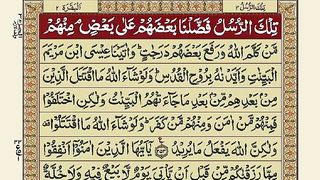 تِلْكَ الرُّسُلُ ٣
الْبَقَرَة ٢
تِلْكَ الرُّسُلُ فَضَّلْنَا بَعْضَهُمْ عَلٰى بَعْضٍ مِنْهُمْ
مَّنْ كَلَّمَ اللّٰهُ وَرَفَعَ بَعْضَهُمْ دَرَجٰتٍ وَاٰتَيْنَا عِيْسَى ابْنَ مَرْيَمَ
الْبَيِّنٰتِ وَاَيَّدْنٰهُ بِرُوْحِ الْقُدُسِ وَلَوْ شَآءَ اللّٰهُ مَا اقْتَتَلَ الَّذِيْنَ
مِنْ بَعْدِهِمْ مِّنْ بَعْدِ مَا جَآءَتْهُمُ الْبَيِّنٰتُ وَلٰكِنِ اخْتَلَفُوْا
فَمِنْهُمْ مَّنْ اٰمَنَ وَمِنْهُمْ مَّنْ كَفَرَ وَلَوْ شَآءَ اللّٰهُ مَا اقْتَتَلُوْا
وَلٰكِنَّ اللّٰهَ يَفْعَلُ مَا يُرِيْدُ ۝٢٥٣ يٰٓاَيُّهَا الَّذِيْنَ اٰمَنُوْٓا اَنْفِقُوْا
مِمَّا رَزَقْنٰكُمْ مِّنْ قَبْلِ اَنْ يَّاْتِيَ يَوْمٌ لَّا بَيْعٌ فِيْهِ وَلَا خُلَّةٌ